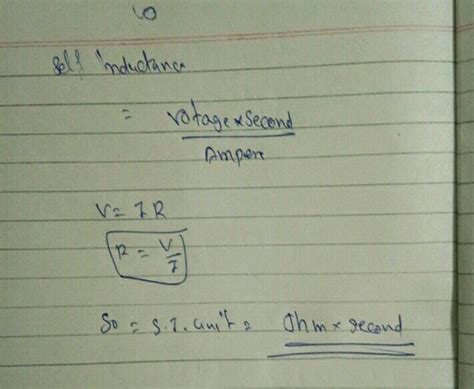 Self inductance
= Votage × Second
Ampere
V = I R
R = V
I
So = S.I. unit = Ohm × second